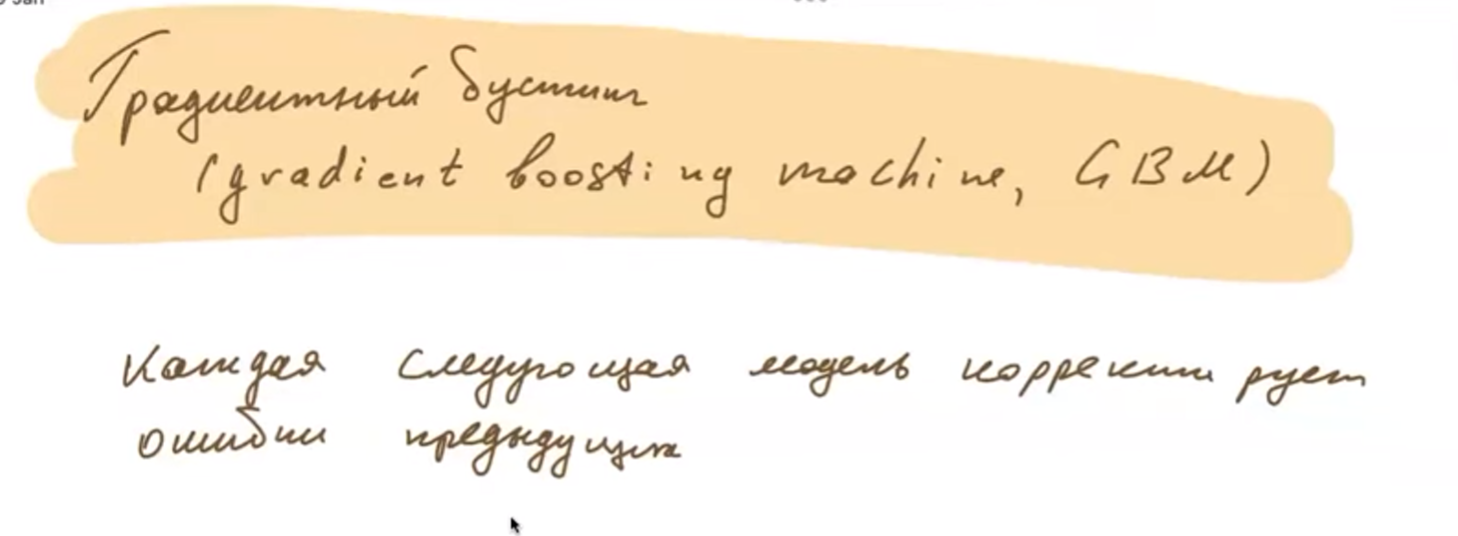 Градиентный бустинг
(gradient boosting machine, GBM)
Каждая следующая модель корректирует
ошибки предыдущих